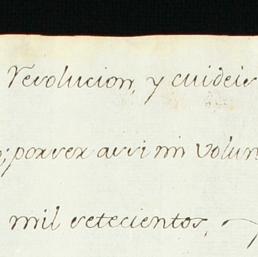 resolucion, y cuideis
; por ser assi mi volun
mil setecientos,